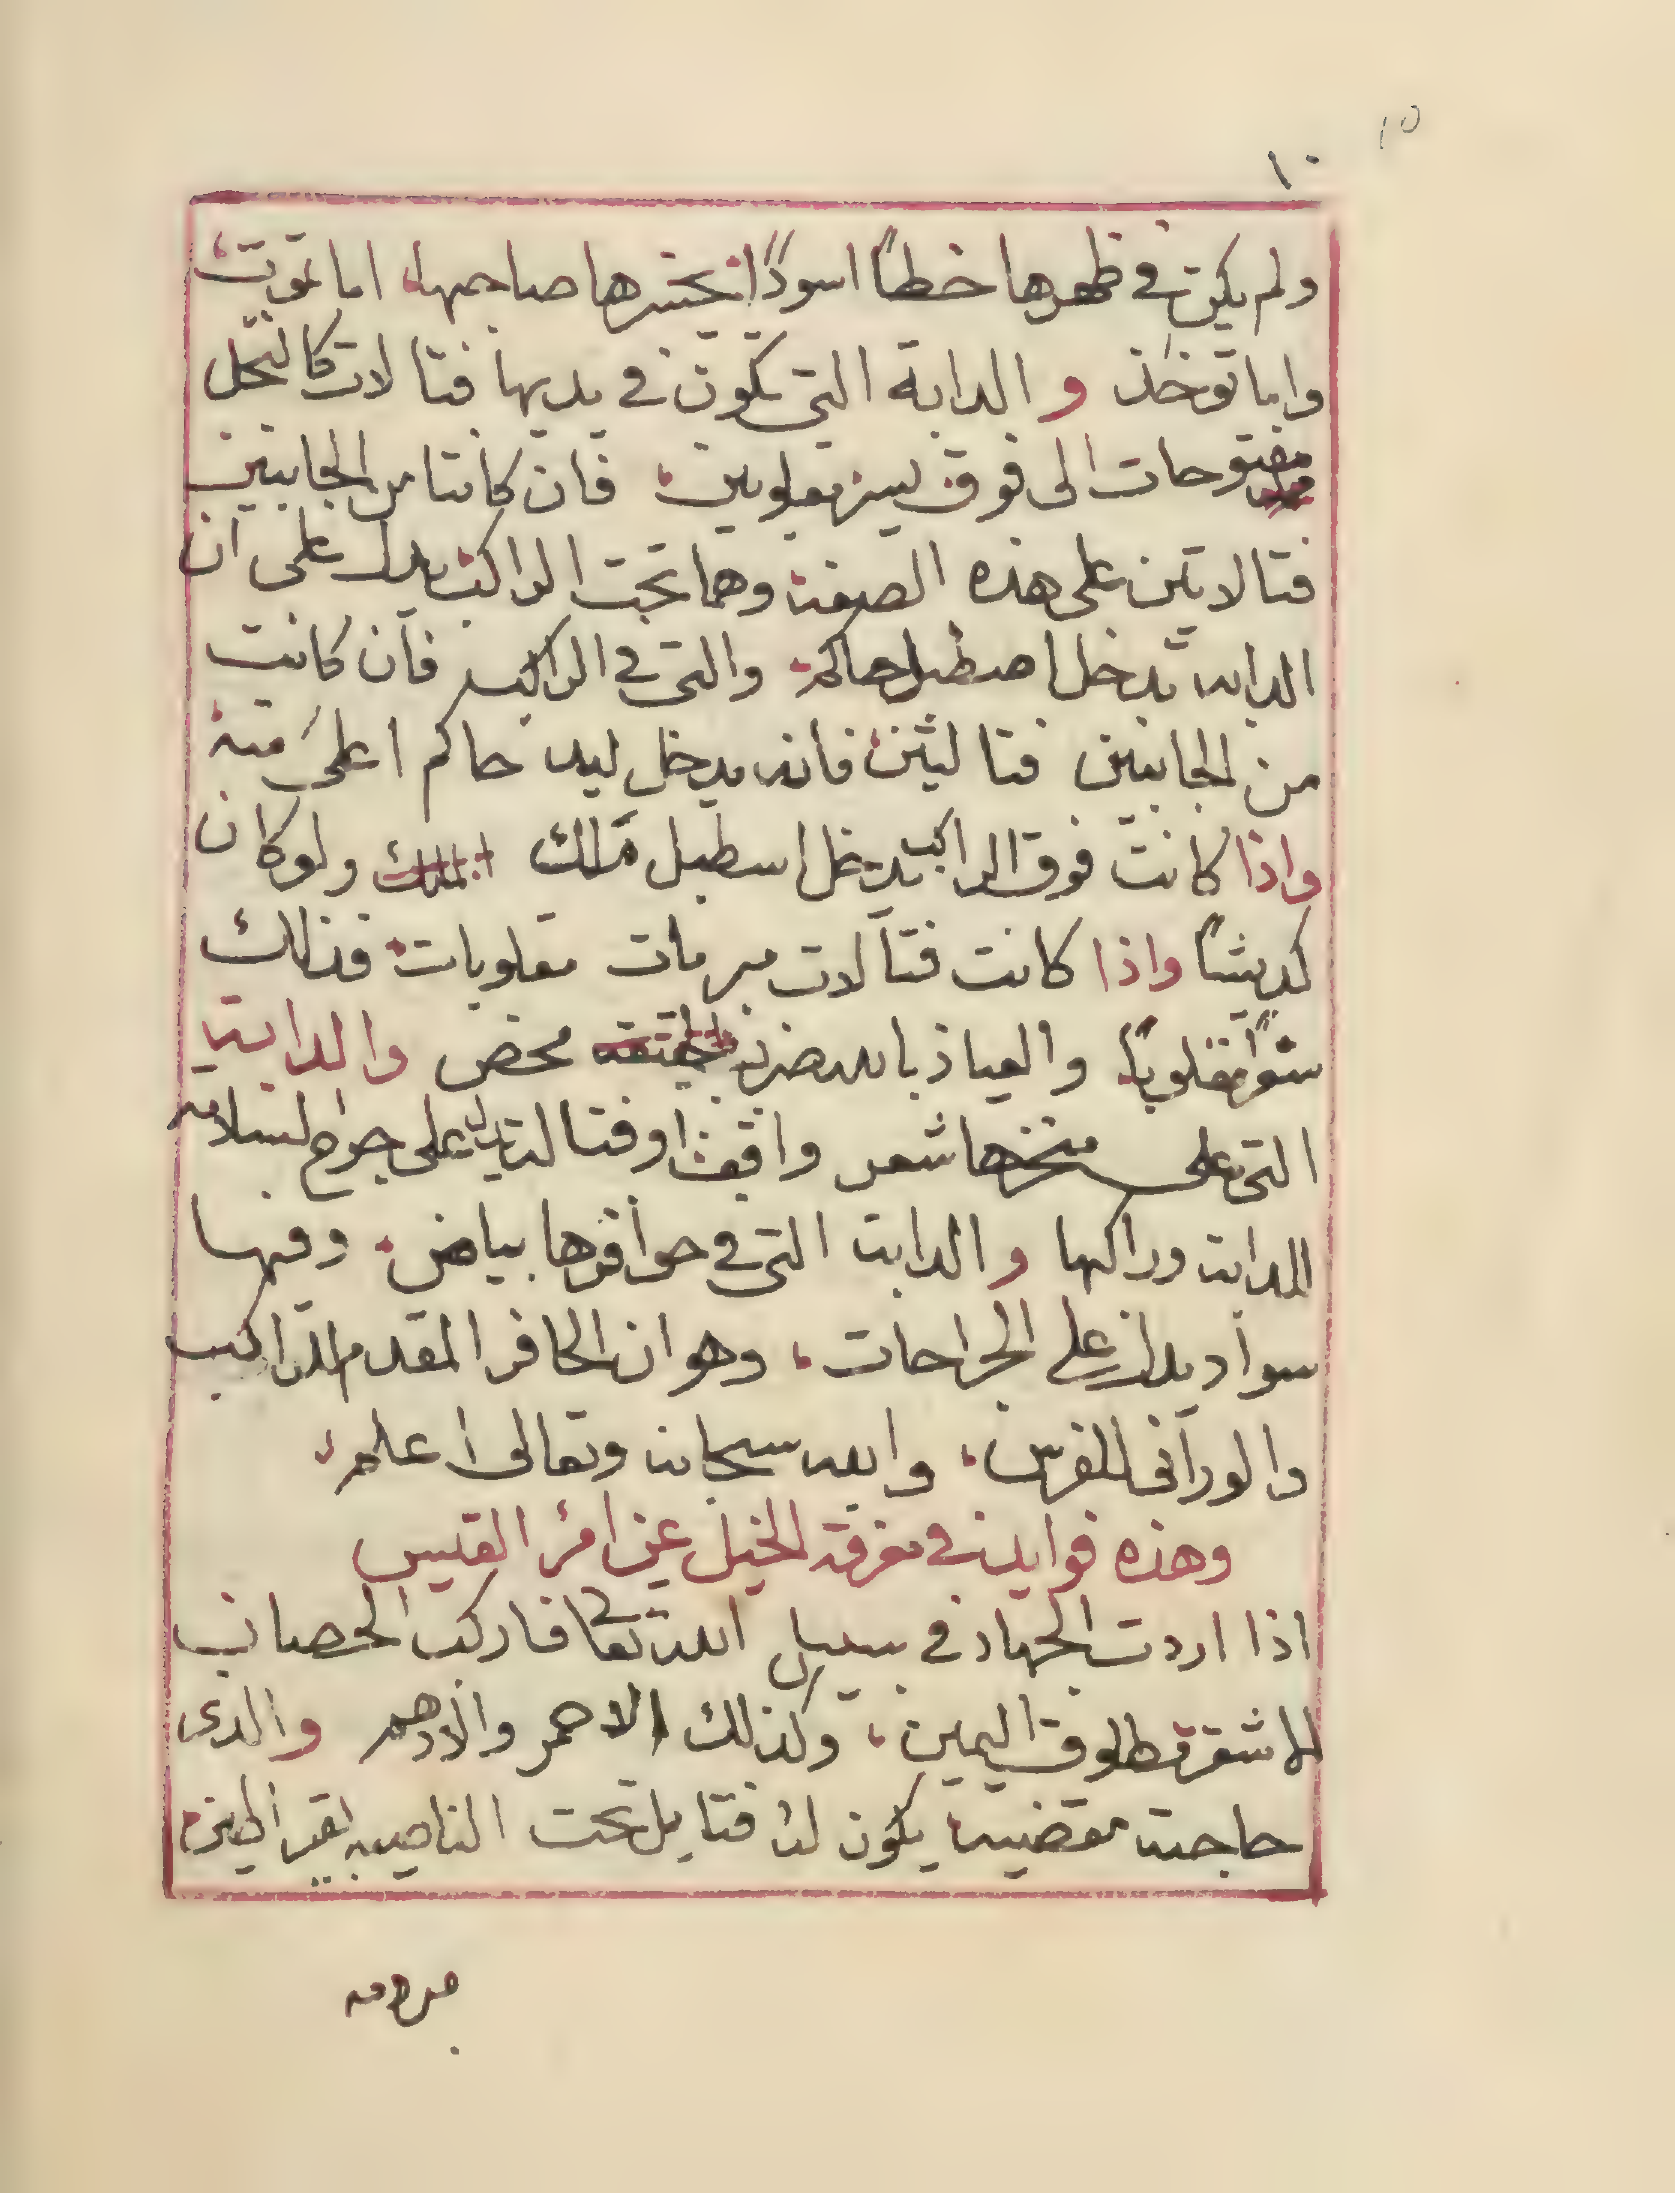 10
١٠
ولم يكن في ظهرها خطاً اسوداً يخسرها صاحبها اما تموت
واما توخذ والدابة التي تكون في يديها فتالات كالنخل
مفتوحات الى فوق ليس مقلوبين فان كانتا من الجانبين
فتالاتين على هذه الصفة وهما تحت الراكب يدل على ان
الدابه تدخل اصطبل حاكم والتي في الراكب فان كانت
من الجانبين فتالتين فانه يدخل ليد حاكم اعلى منه
واذا كانت فوق الراكب يدخل اسطبل ملك الملك ولو كان
كديشاً واذا كانت فتالات مبرمات مقلوبات فذلك
مقلوباً والعياذ بالله محض والدابة
التي على منخرها شعر واقف او فتالة يدل على جراح لسلامه
الدابة وراكبها والدابة التي في حوافرها بياض وفيها
سواد يدل على الجراحات وهو ان الحافر المقدم للراكب
والوراني للفرس والله سبحانه وتعالى اعلم
وهذه فوايد في معرفة الخيل عن امرء القيس
اذا اردت الجهاد في سبيل الله تعالى فاركب الحصان
الاشقر مطلوق اليمين وكذلك الاحمر والادهم والدى
حاجته مقضيه يكون له فتايل تحت الناصيه